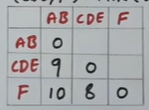 AB CDE F
AB 0
CDE 9 0
F 10 8 0